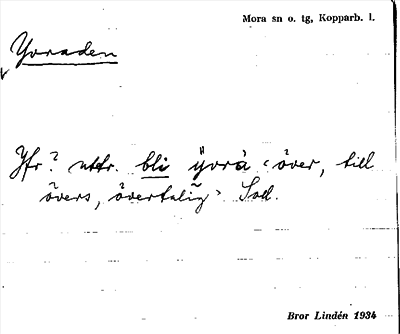 Mora sn o. tg, Kopparb. l.
Yvraden
Jfr? uttr. bli ÿvrà 'över, till
övers, övertalig' Soll.
Bror Lindén 1934